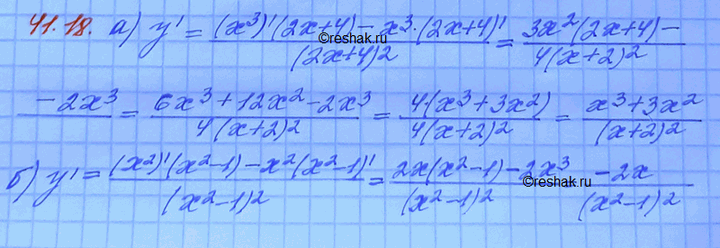 41.18. а) y' = ((x³)'(2x+4) - x³·(2x+4)')/(2x+4)2 = (3x²(2x+4) -)/(4(x+2)²)
(-2x³)/ = (6x³+12x²-2x³)/(4(x+2)²) = (4(x³+3x²))/(4(x+2)²) = (x³+3x²)/(x+2)²
б) y' = ((x²)'(x²-1) - x²(x²-1)')/(x²-1)² = (2x(x²-1) - 2x³)/(x²-1)² = (-2x)/(x²-1)²
©reshak.ru
©reshak.ru